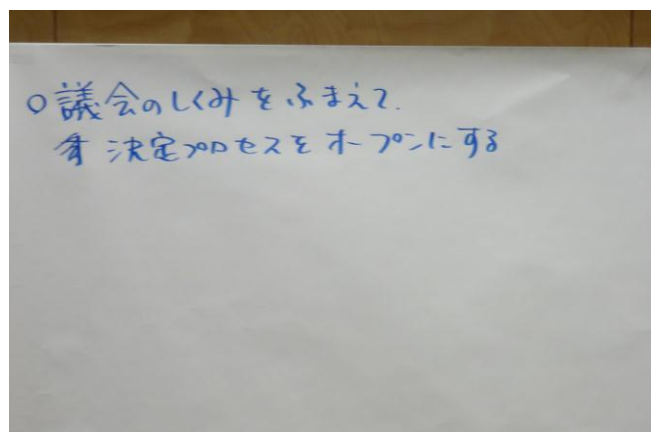 ○議会のしくみをふまえて.
決定プロセスをオープンにする